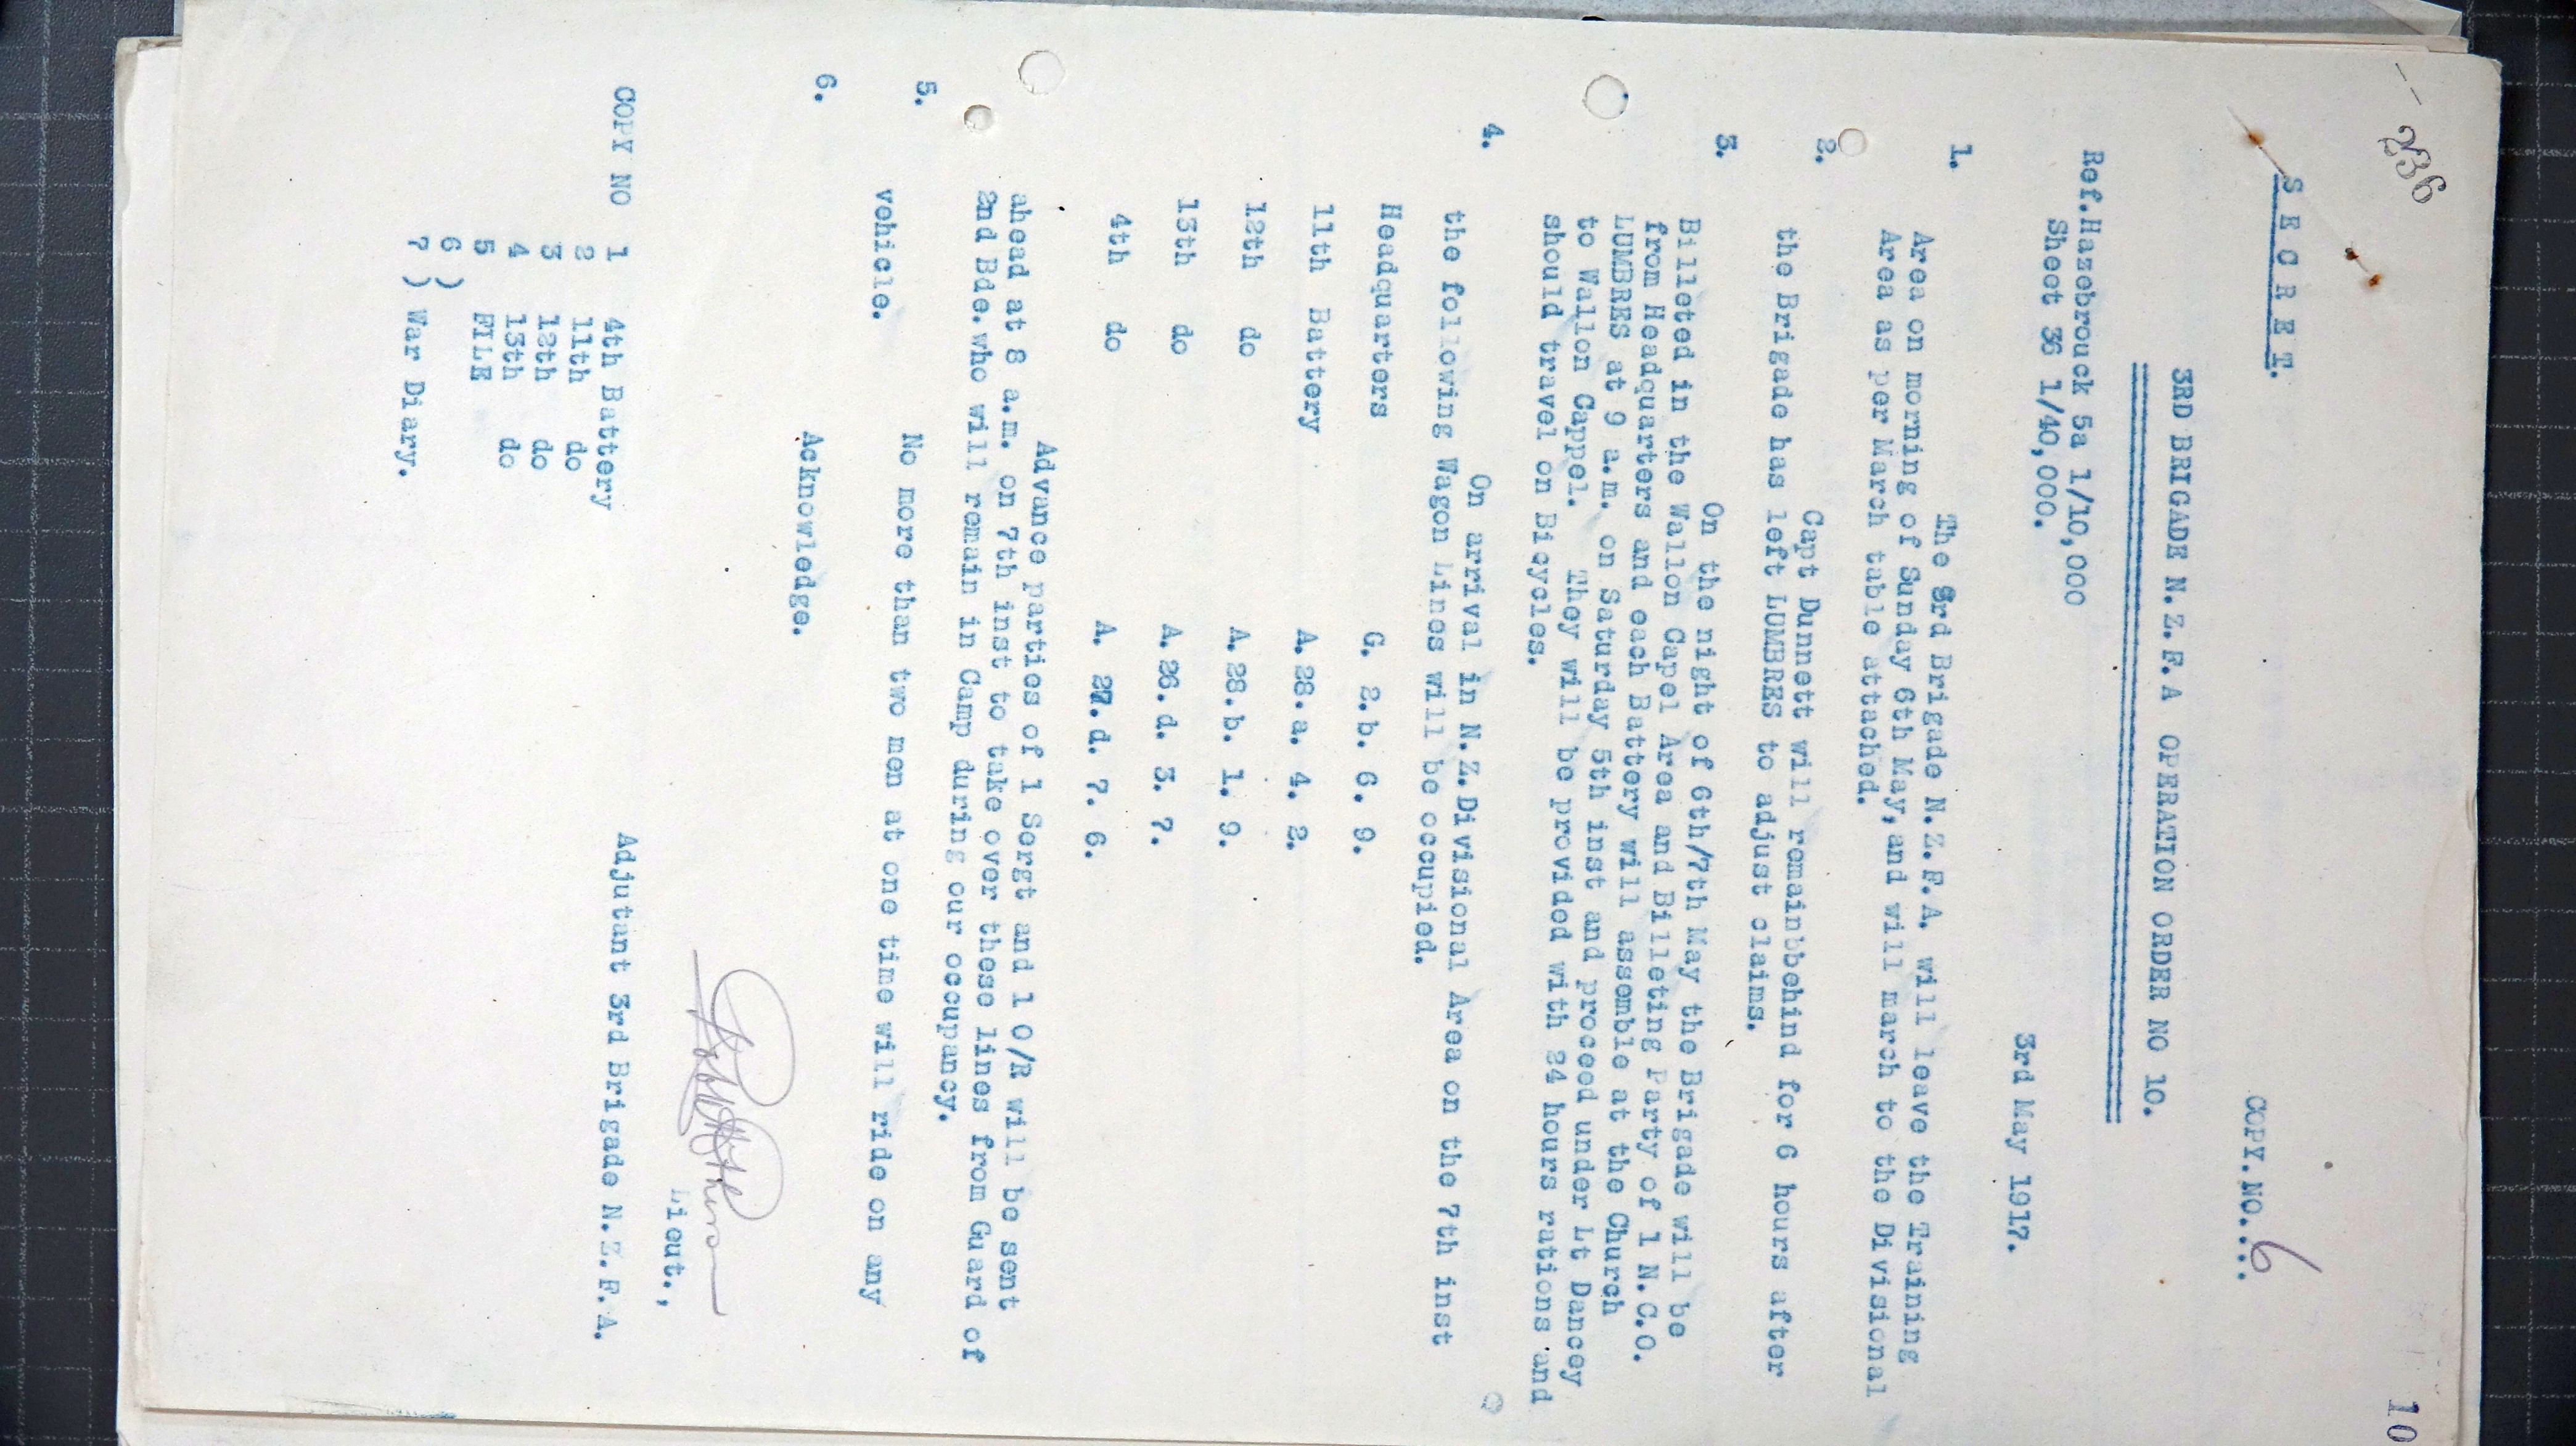 236
10
S E C R E T.
COPY.NO....6
3RD BRIGADE N.Z.F.A OPERATION ORDER NO 10.
Ref.Hazebrouck 5a 1/10,000
Sheet 36 1/40,000.
3rd May 1917.
1. The 3rd Brigade N.Z.F.A. will leave the Training
Area on morning of Sunday 6th May, and will march to the Divisional
Area as per March table attached.
2. Capt Dunnett will remainbbehind for 6 hours after
the Brigade has left LUMBRES to adjust claims.
3. On the night of 6th/7th May the Brigade will be
Billeted in the Wallon Capel Area and Billeting Party of 1 N.C.O.
from Headquarters and each Battery will assemble at the Church
LUMBRES at 9 a.m. on Saturday 5th inst and proceed under Lt Dancey
to Wallon Cappel. They will be provided with 24 hours rations and
should travel on Bicycles.
4. On arrival in N.Z.Divisional Area on the 7th inst
the following Wagon Lines will be occupied.
Headquarters G. 2.b. 6. 9.
11th Battery A.28.a. 4. 2.
12th do A.28.b. 1. 9.
13th do A.26.d. 3. 7.
4th do A. 27.d. 7. 6.
Advance parties of 1 Sergt and 1 O/R will be sent
ahead at 8 a.m. on 7th inst to take over these lines from Guard of
2nd Bde.who will remain in Camp during our occupancy.
5. No more than two men at one time will ride on any
vehicle.
6. Acknowledge.
Lieut.,
Adjutant 3rd Brigade N.Z.F.A.
COPY NO 1 4th Battery
2 11th do
3 12th do
4 13th do
5 FILE
6 )
7 ) War Diary.